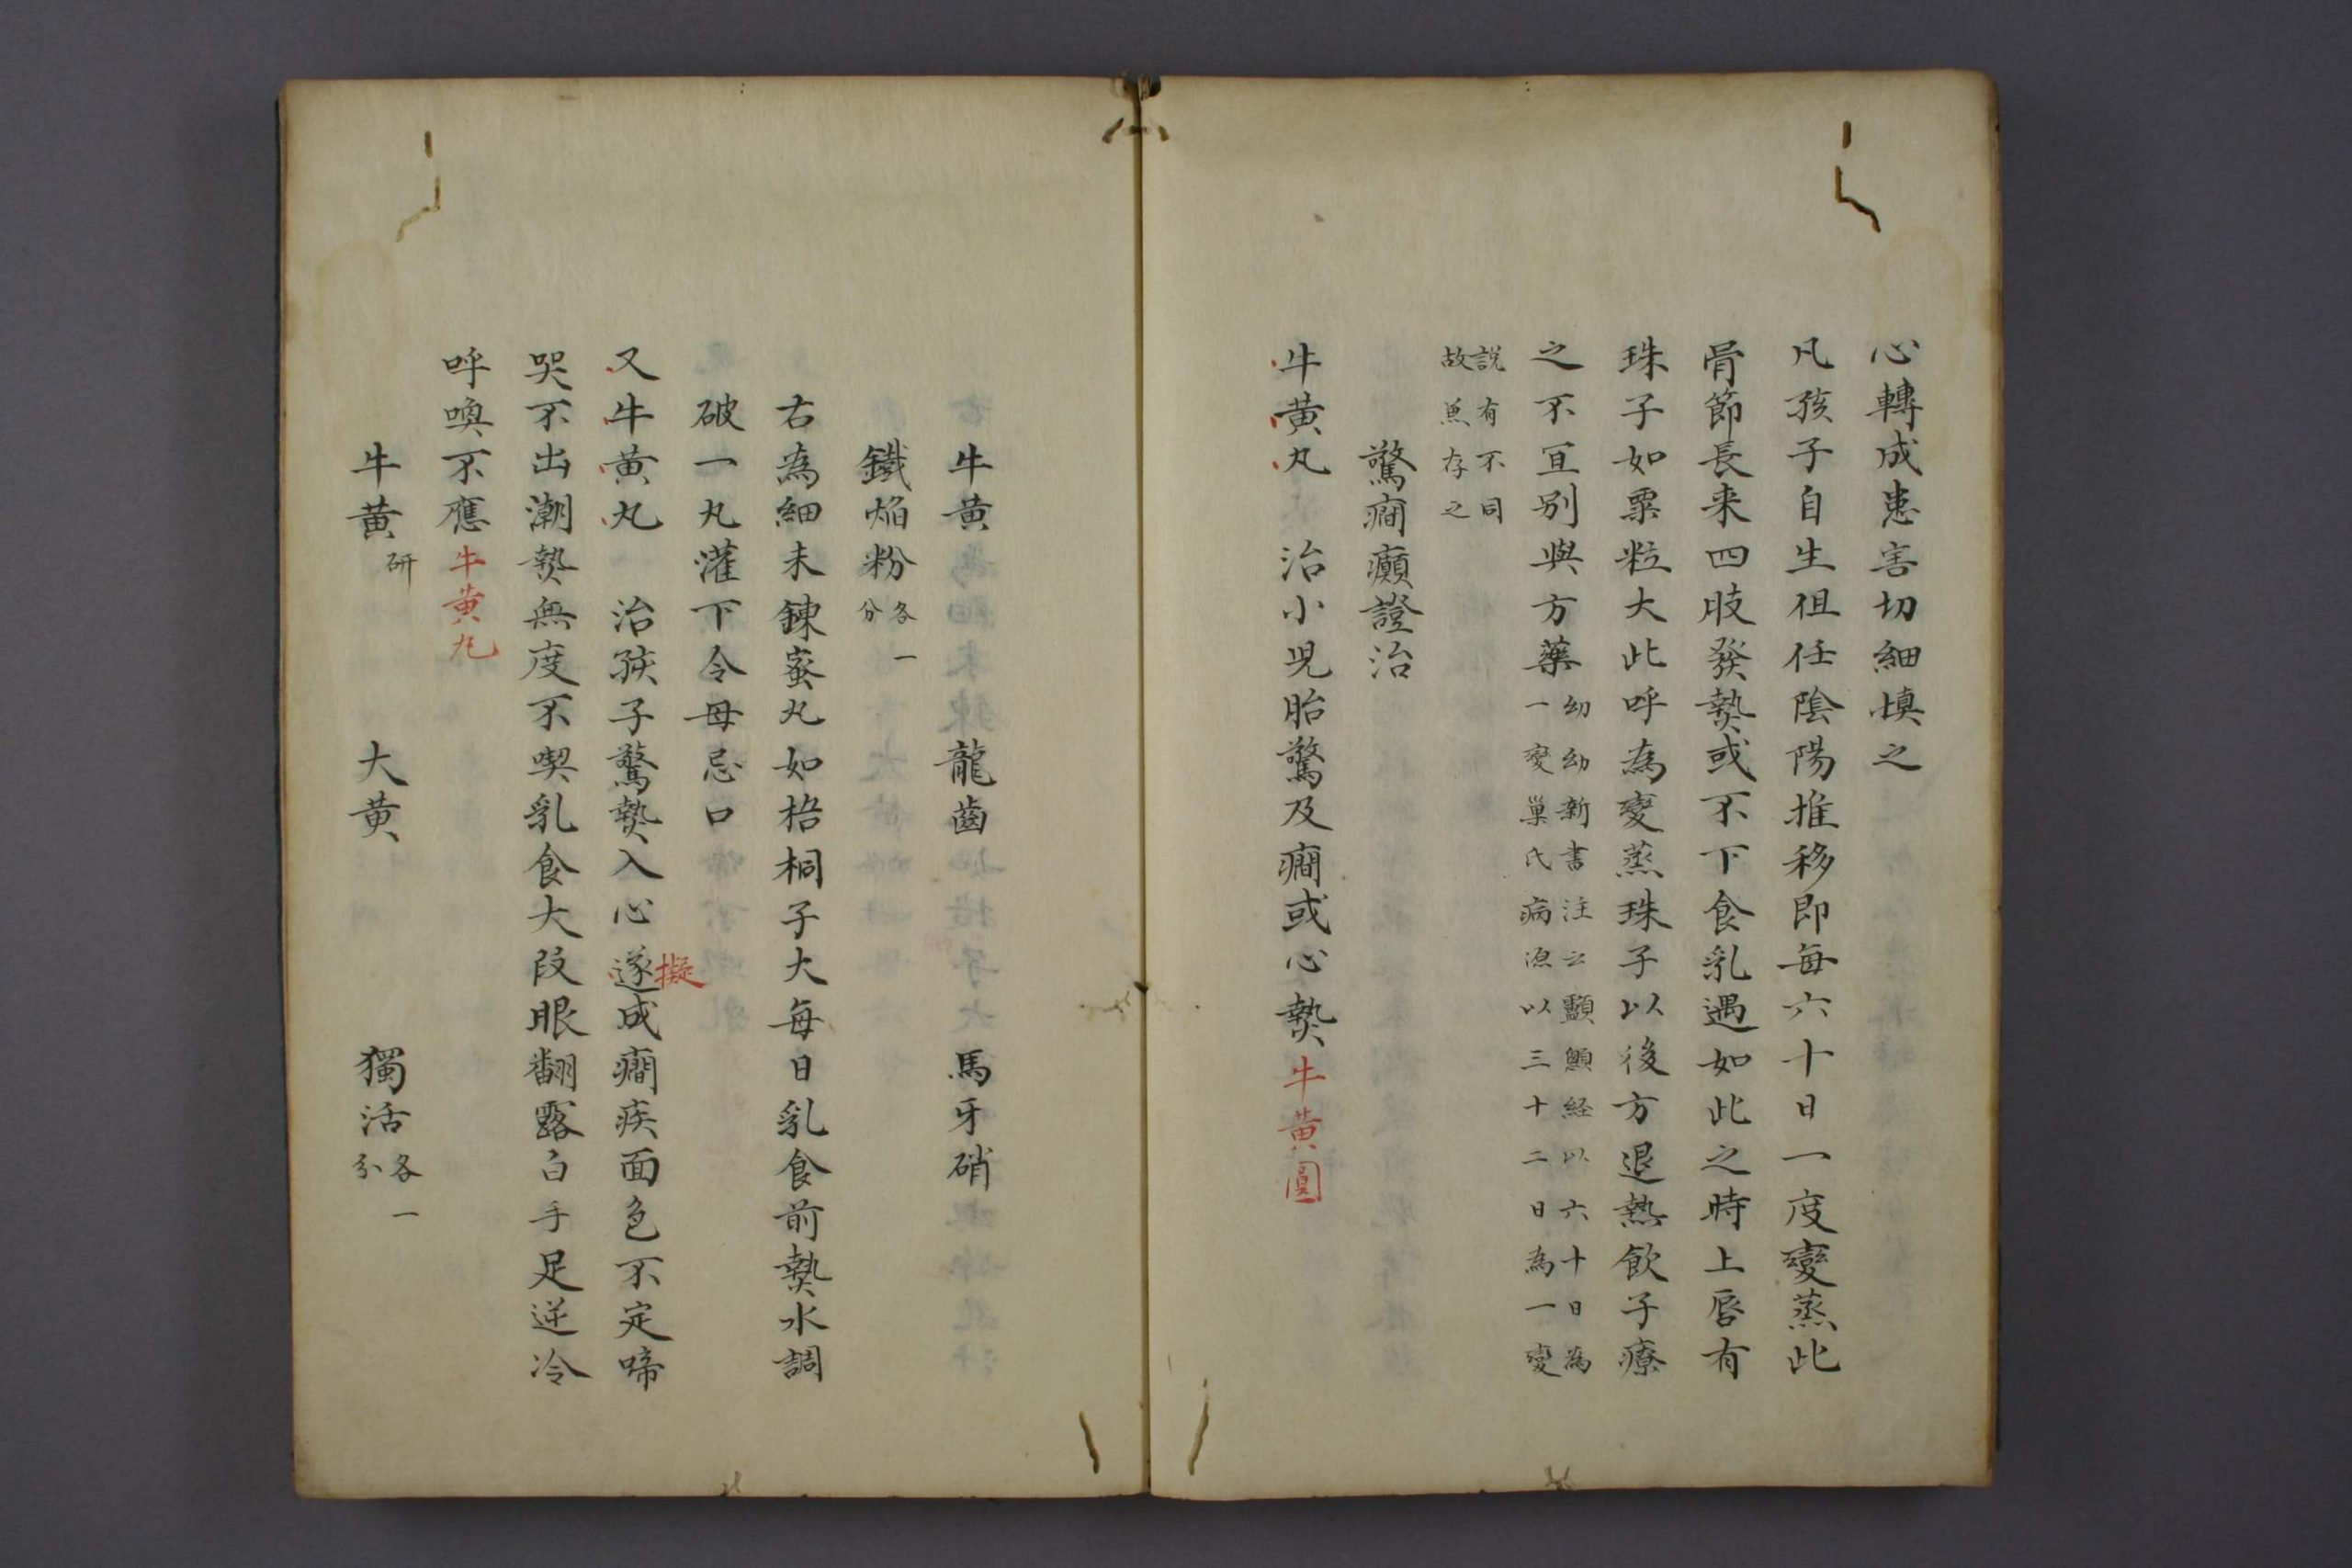 心轉成患害切細慎之
凡孩子自生但任陰陽推移即每六十日一度變蒸此
骨節長来四肢發𤍠或不下食乳遇如此之時上唇有
珠子如粟粒大此呼為變蒸珠子以後方退熱飲子療
之不宜別與方藥幼幼新書注云顱顖経以六十日為
一變巢氏病源以三十二日為一變
說有不同
故兼存之
驚癇癲證治
牛黄丸 治小児胎驚及癇或心𤍠牛黄圓
牛黄 龍齒 馬牙硝
鐵焰粉各一分
右為細末鍊蜜丸如梧桐子大每日乳食前𤍠水調
破一丸灌下令母忌口
又牛黄丸 治孩子驚𤍠入心遂成癇疾面色不定啼
擬
哭不出潮𤍠無度不喫乳食大段眼翻露白手足逆冷
呼喚不應牛黄丸
牛黄研 大黄 獨活各一分